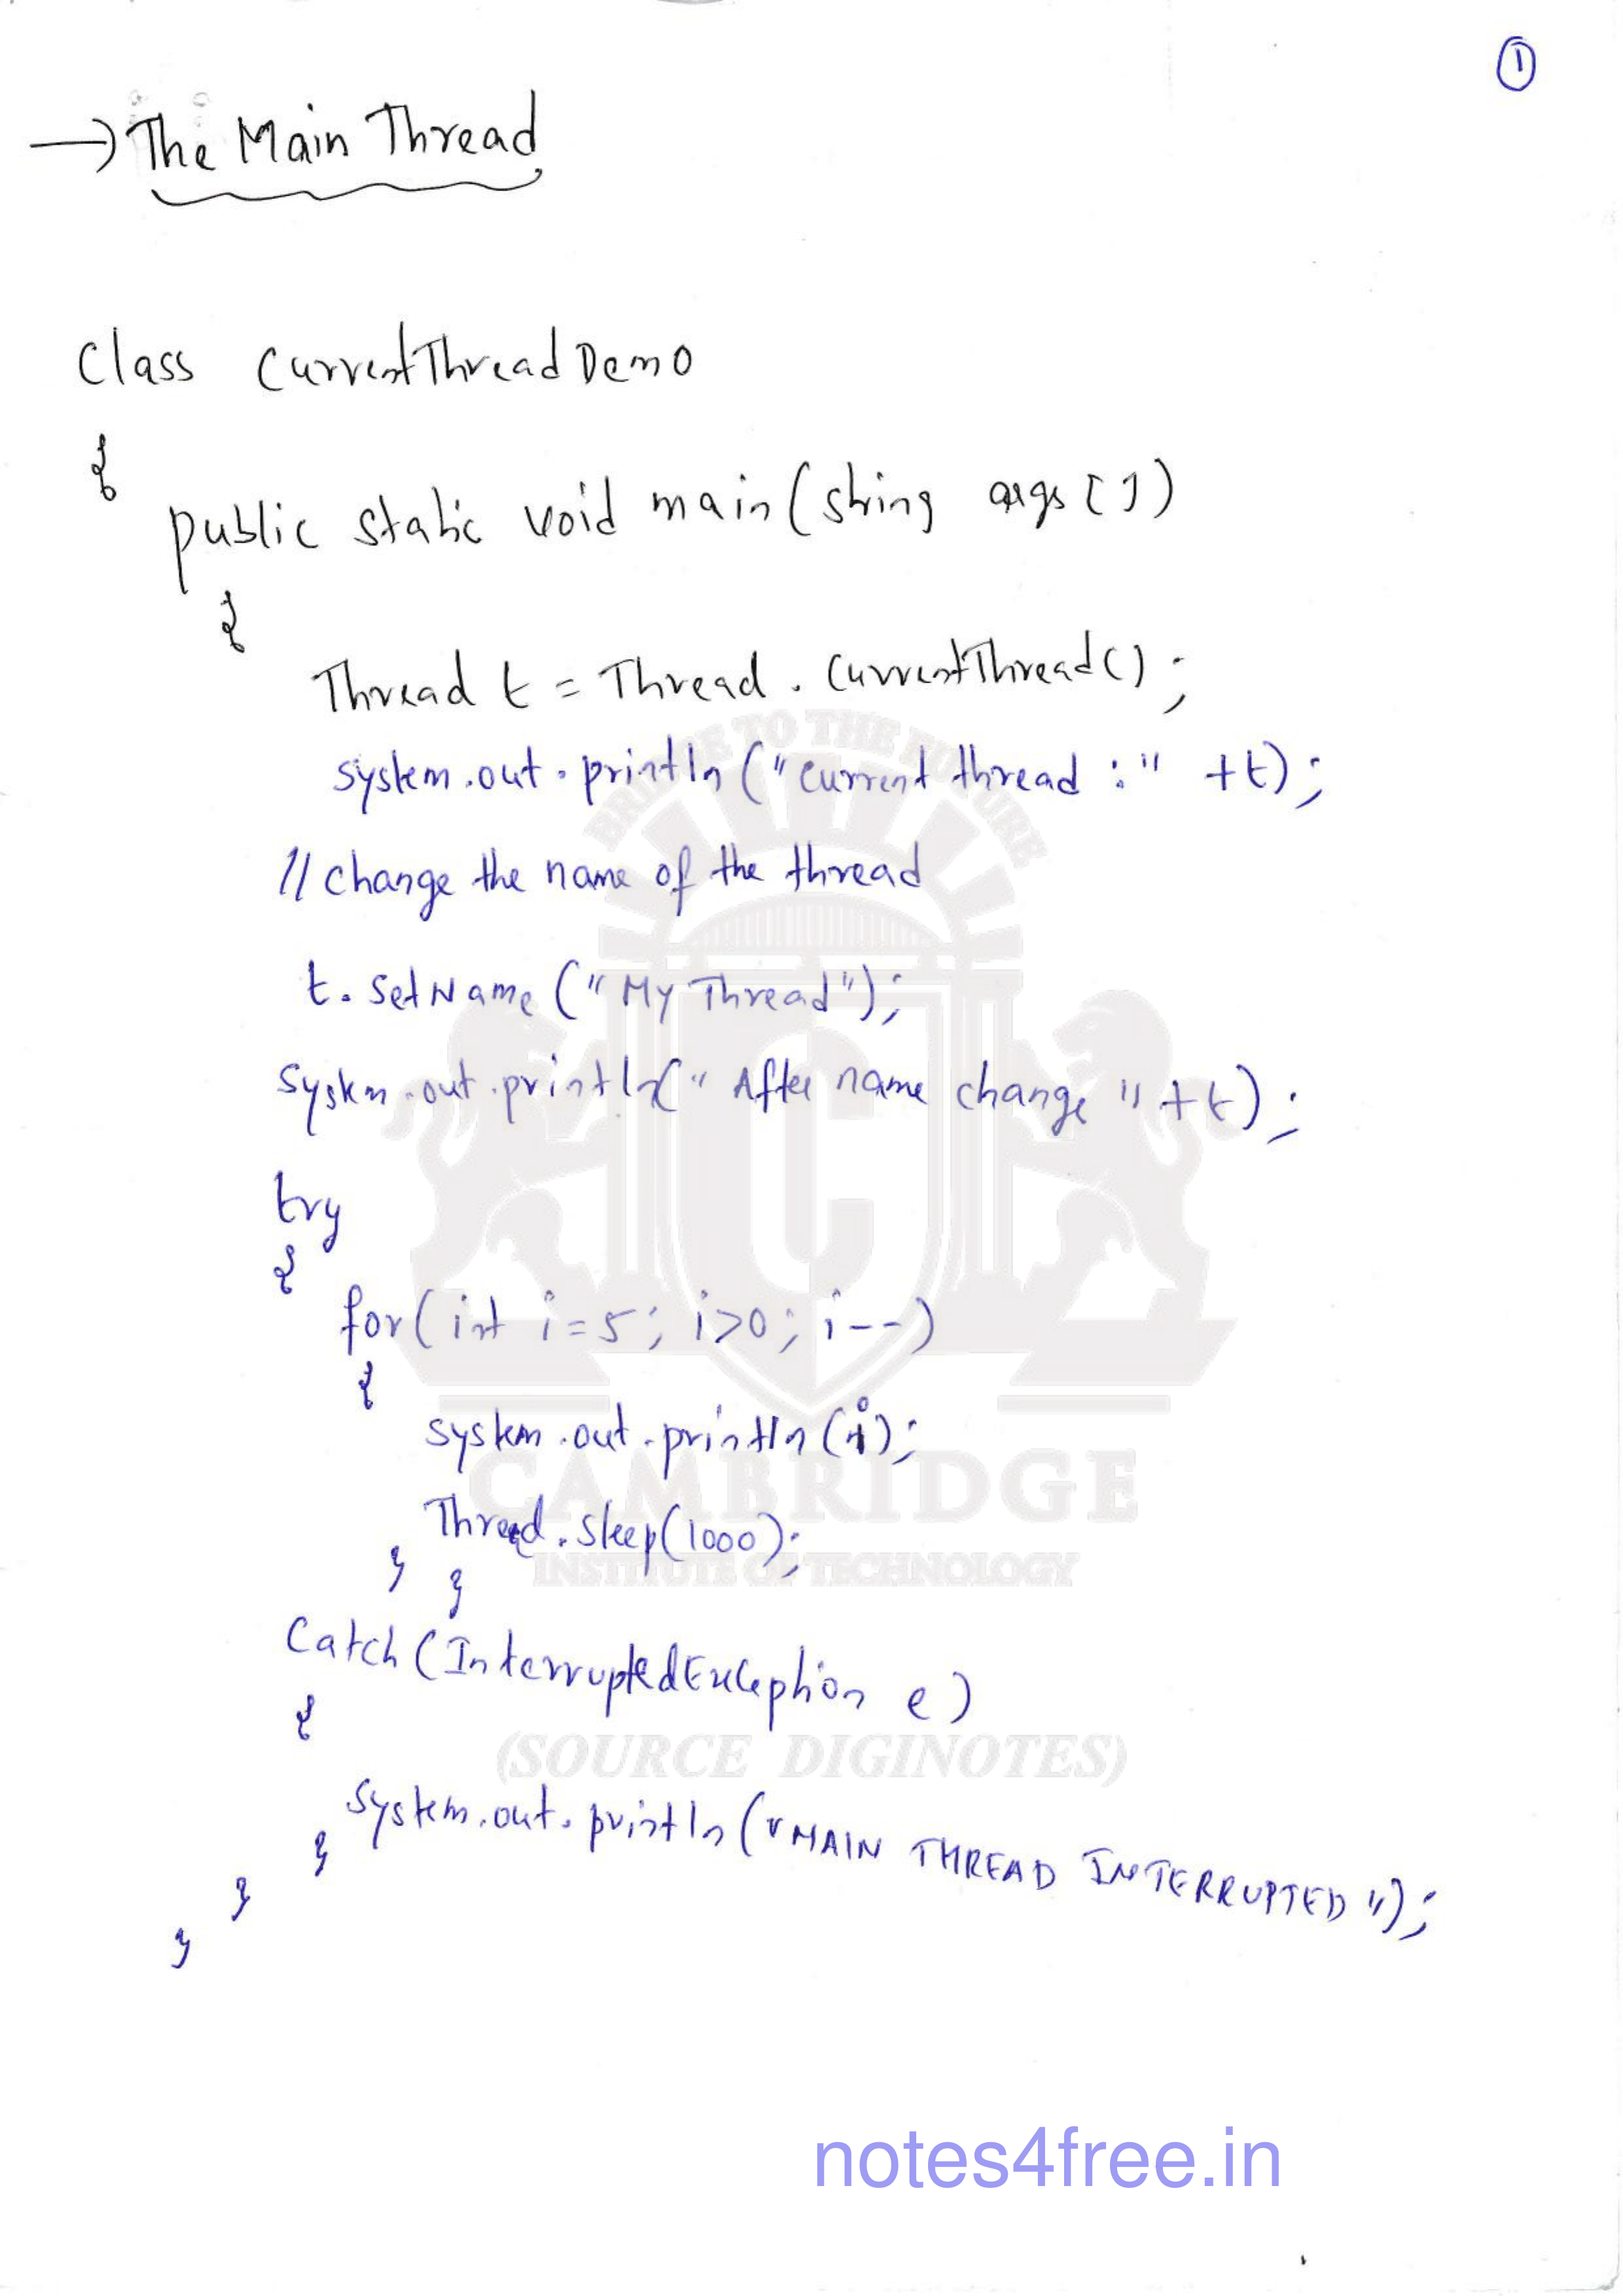 1
→ The Main Thread
Class CurrentThreadDemo
{
public static void main(string args[])
{
Thread t = Thread.currentThread();
system.out.println("current thread :" +t);
// change the name of the thread
t.setName("My Thread");
System.out.println(" After name change "+t);
try
{
for(int i=5; i>0; i--)
{
system.out.println(i);
Thread.sleep(1000);
} }
Catch(InterruptedException e)
{
System.out.println("MAIN THREAD INTERRUPTED");
}
}
}
BRIDGE TO THE FUTURE
C
CAMBRIDGE
INSTITUTE OF TECHNOLOGY
(SOURCE DIGINOTES)
notes4free.in